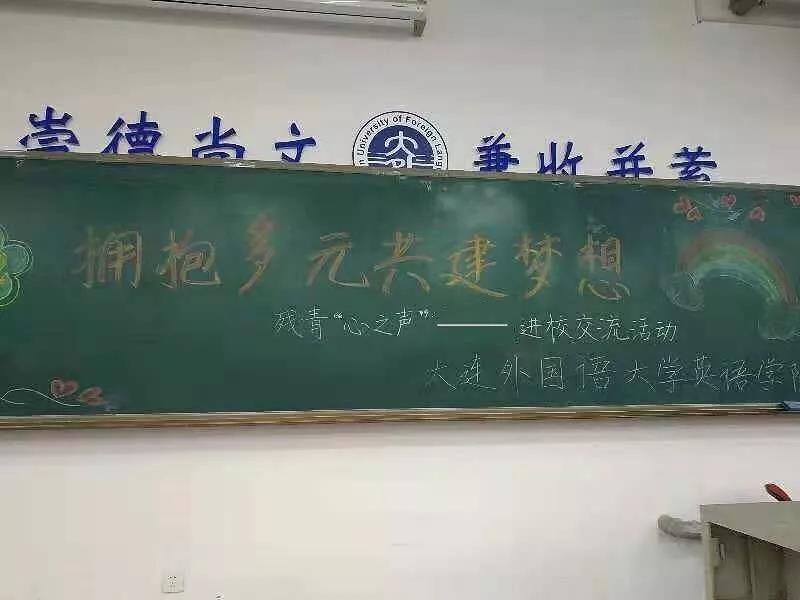 崇德尚文 兼收并蓄
n University of Foreign Lang
拥抱多元共建梦想
残青“心之声”——进校交流活动
大连外国语大学英语学院